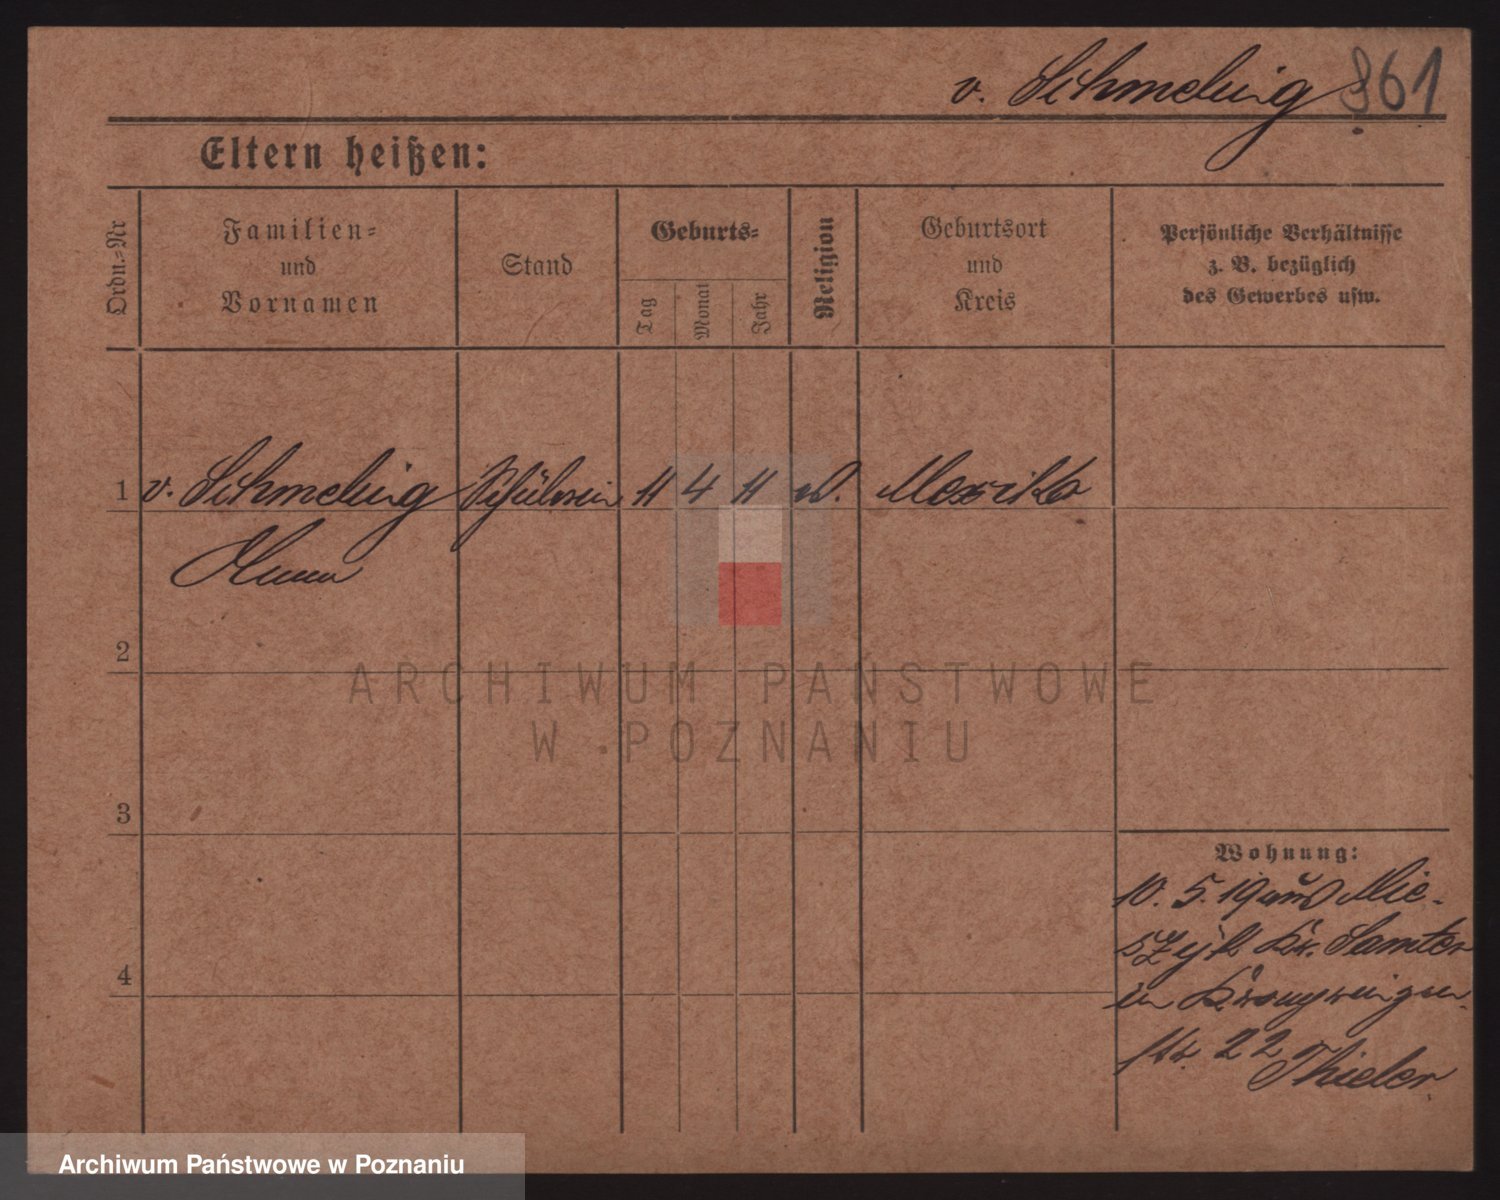 v. Schmeling 861
Eltern heißen:
Ordn.-Nr
Familien-
und
Vornamen
Stand
Geburts-
Tag
Monat
Jahr
Religion
Geburtsort
und
Kreis
Persönliche Verhältnisse
z. B. bezüglich
des Gewerbes usw.
1 v. Schmeling Schülerin 11 4 11 Mexiko
2
ARCHIWUM PAŃSTWOWE
W POZNANIU
3
Wohnung:
10. 5. 19 aus Mie-
Kr. Samter
4
in
str. 22
Thieler
Archiwum Państwowe w Poznaniu